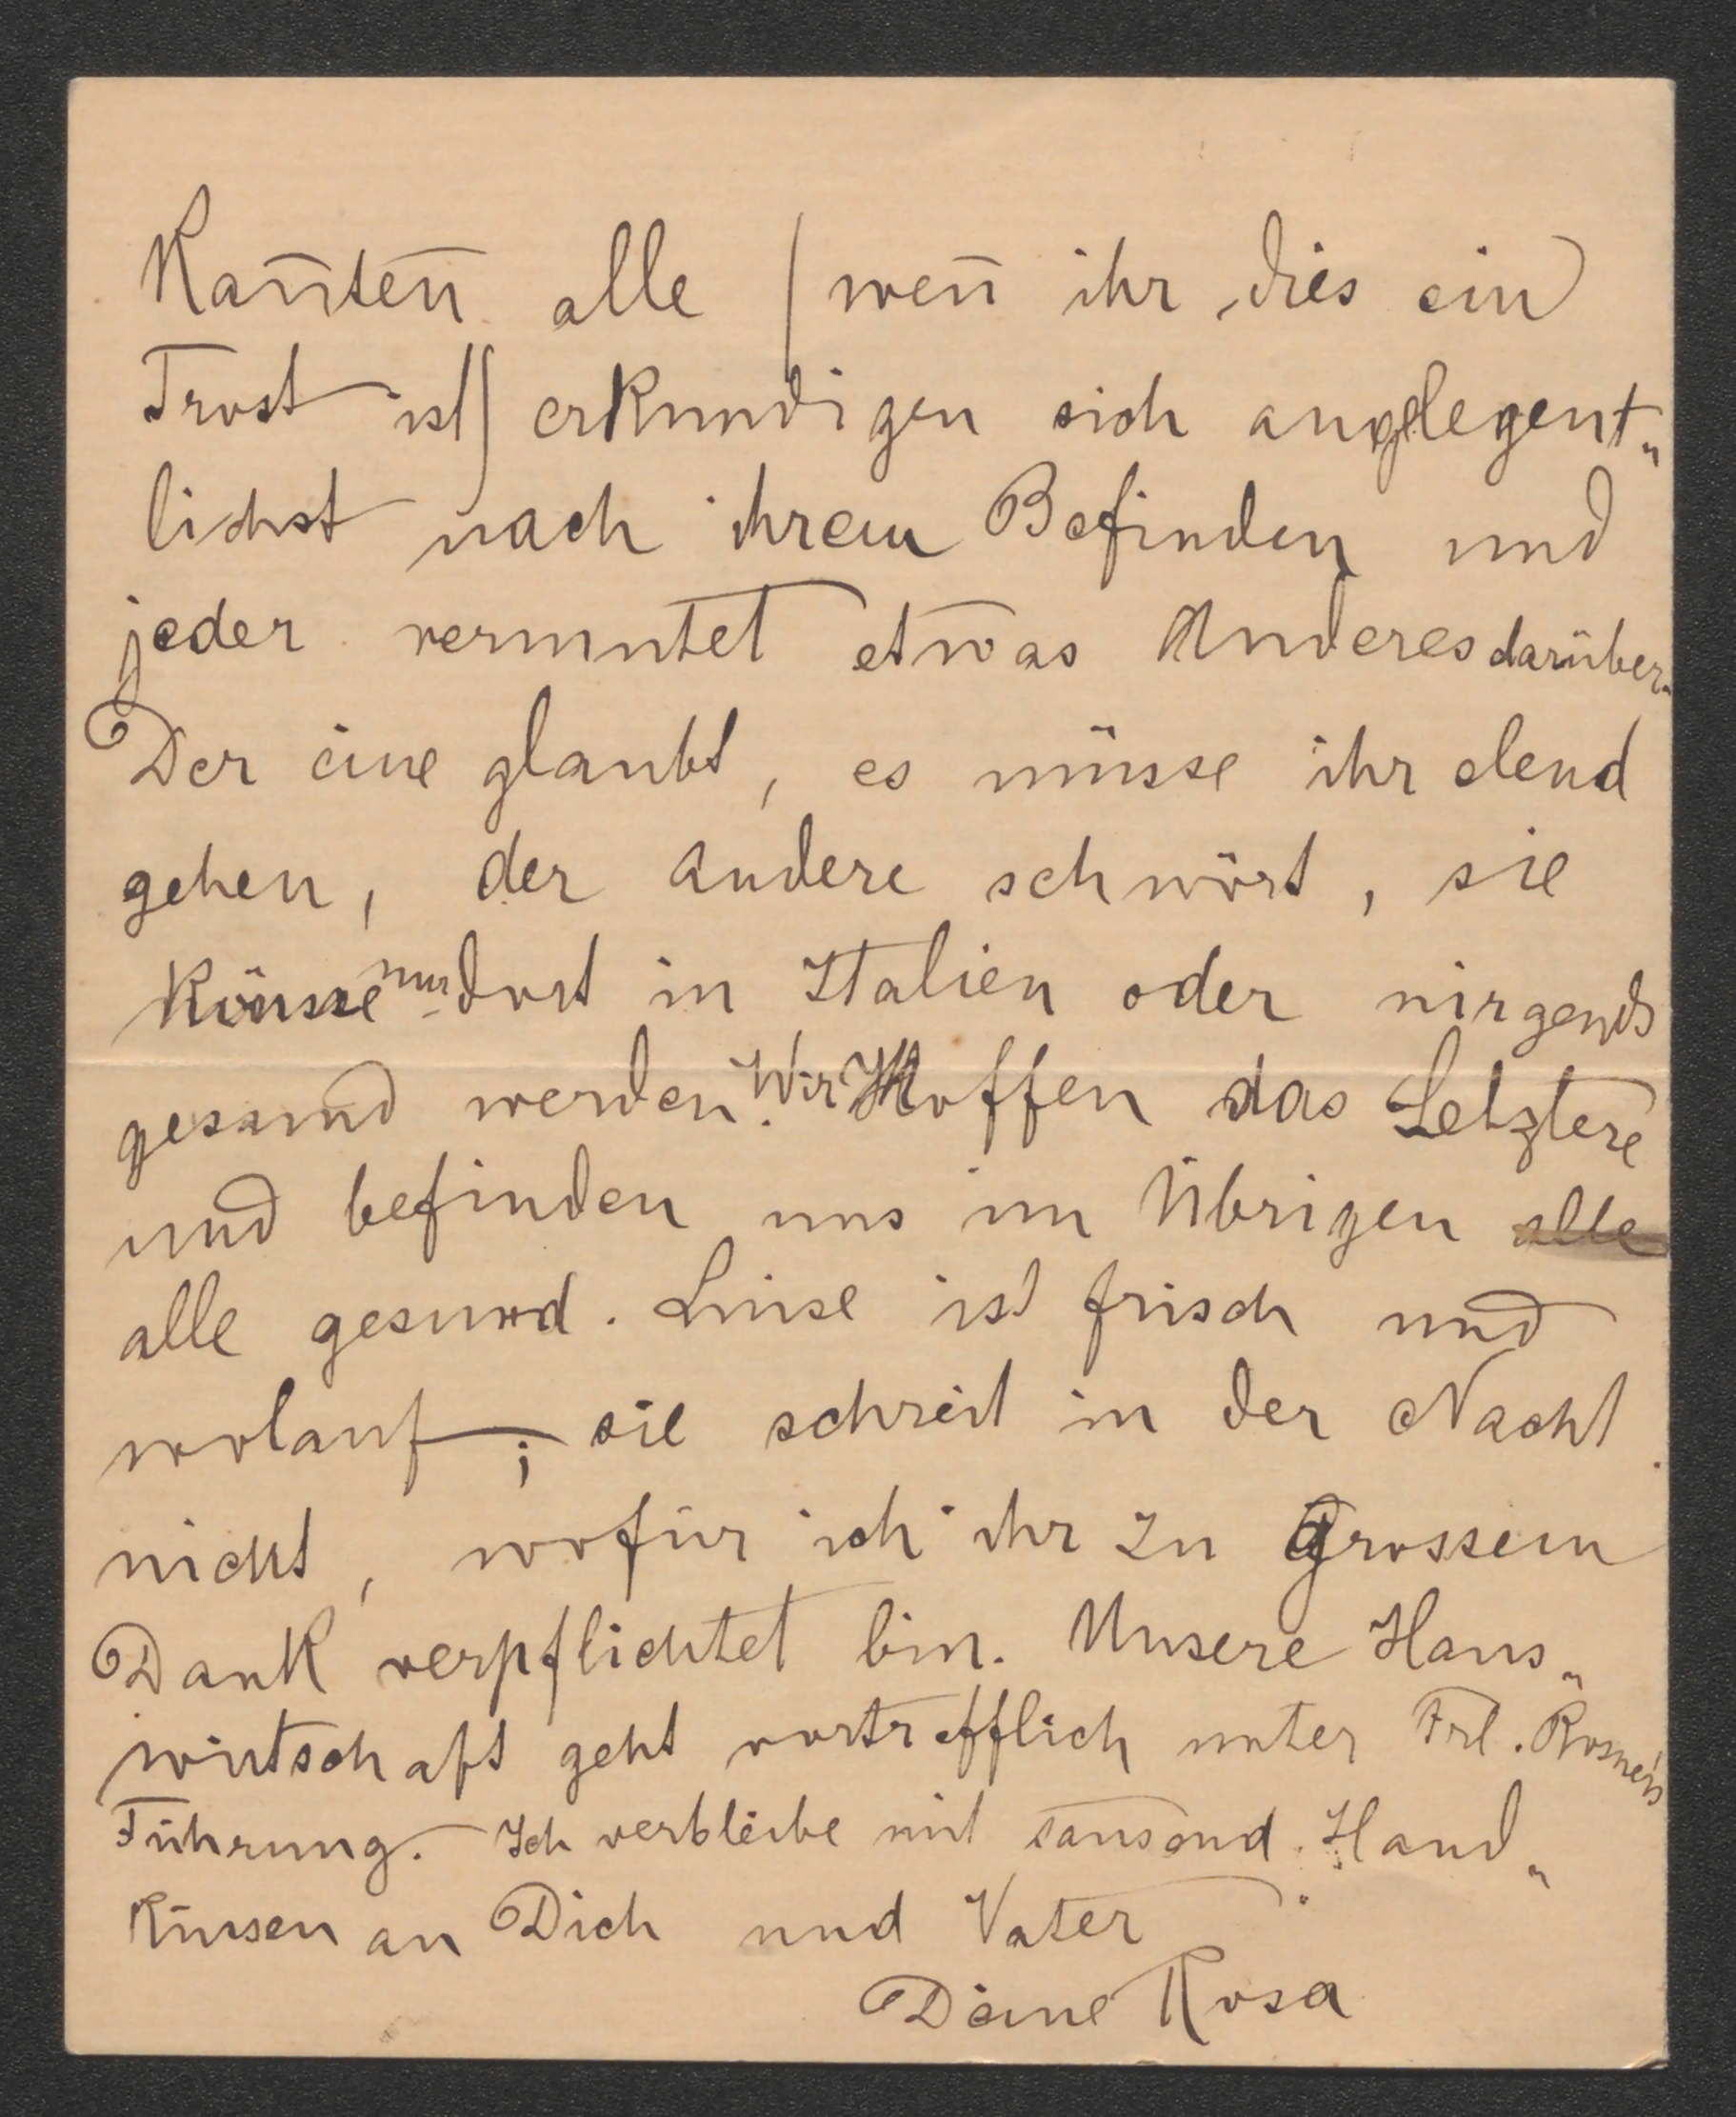 Kan̄ten̄ alle (wen̄ ihr dies ein
Trost ist) erkundigen sich angelegent„
lichst nach ihrem Befinden und
jeder vermutet etwas Anderes darüber.
Der eine glaubt, es müsse ihr elend
gehen, der andere schwört, sie
könne nur dort in Italien oder nirgends
gesund werden. Wir hoffen das Letztere
und befinden uns im Übrigen alle
alle gesund. Luise ist frisch und
wolauf; sie schreit in der Nacht
nicht, wofür ich ihr zu grossem
Dank verpflichtet bin. Unsere Haus„
wirtschaft geht vortrefflich unter Frl.
Führung. Ich verbleibe mit tausend Hand„
küssen an Dich und Vater
Deine Rosa